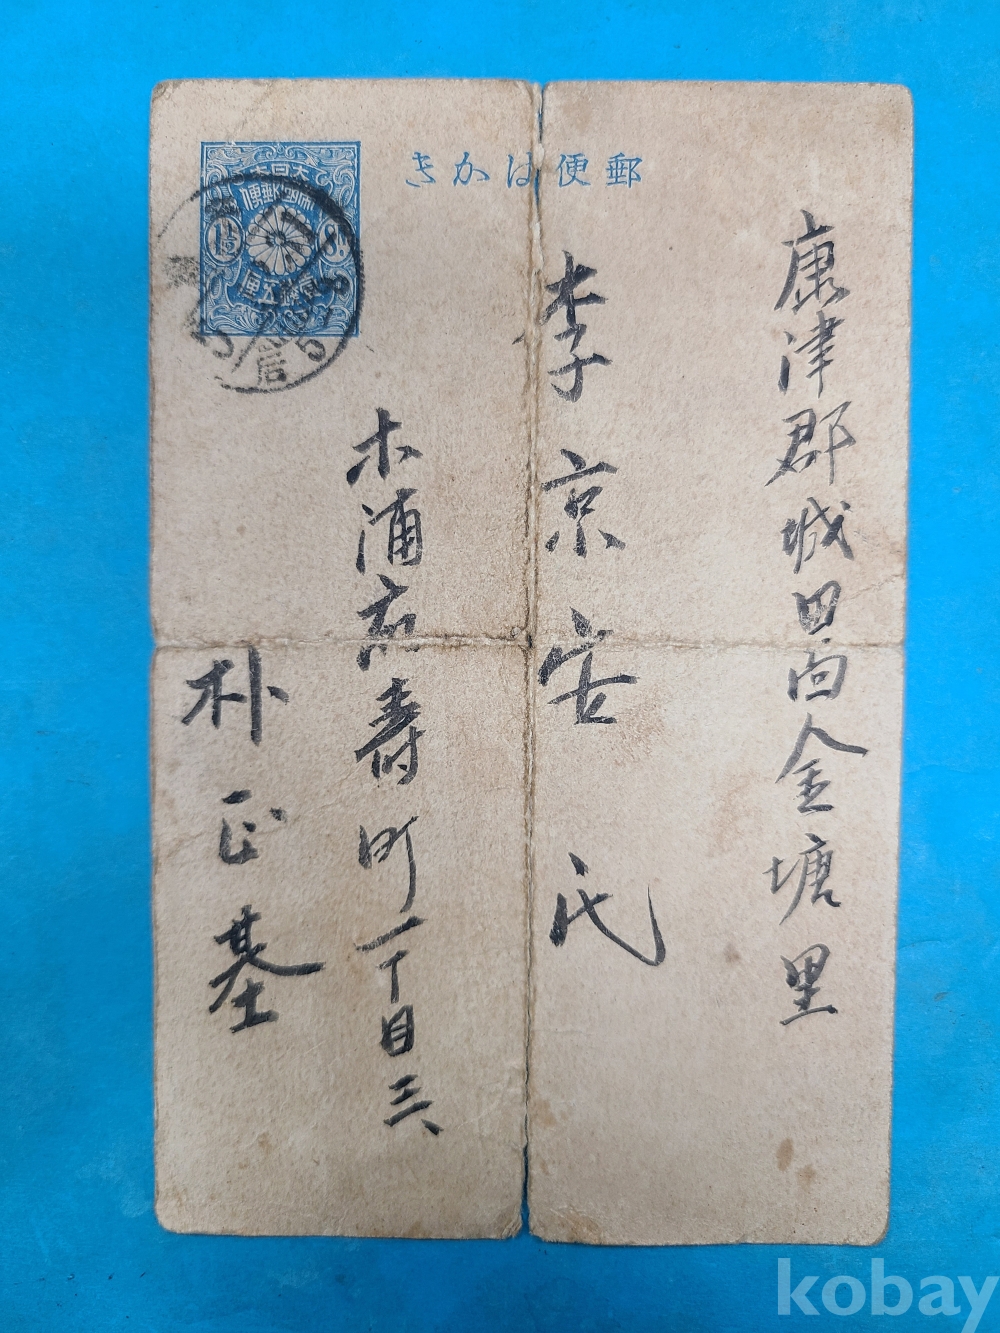 郵便はかき
康津郡城田面金塘里
李京安氏
木浦府壽町一丁目三六
朴正基
大日本
帝國郵便
壹錢五厘
kobay